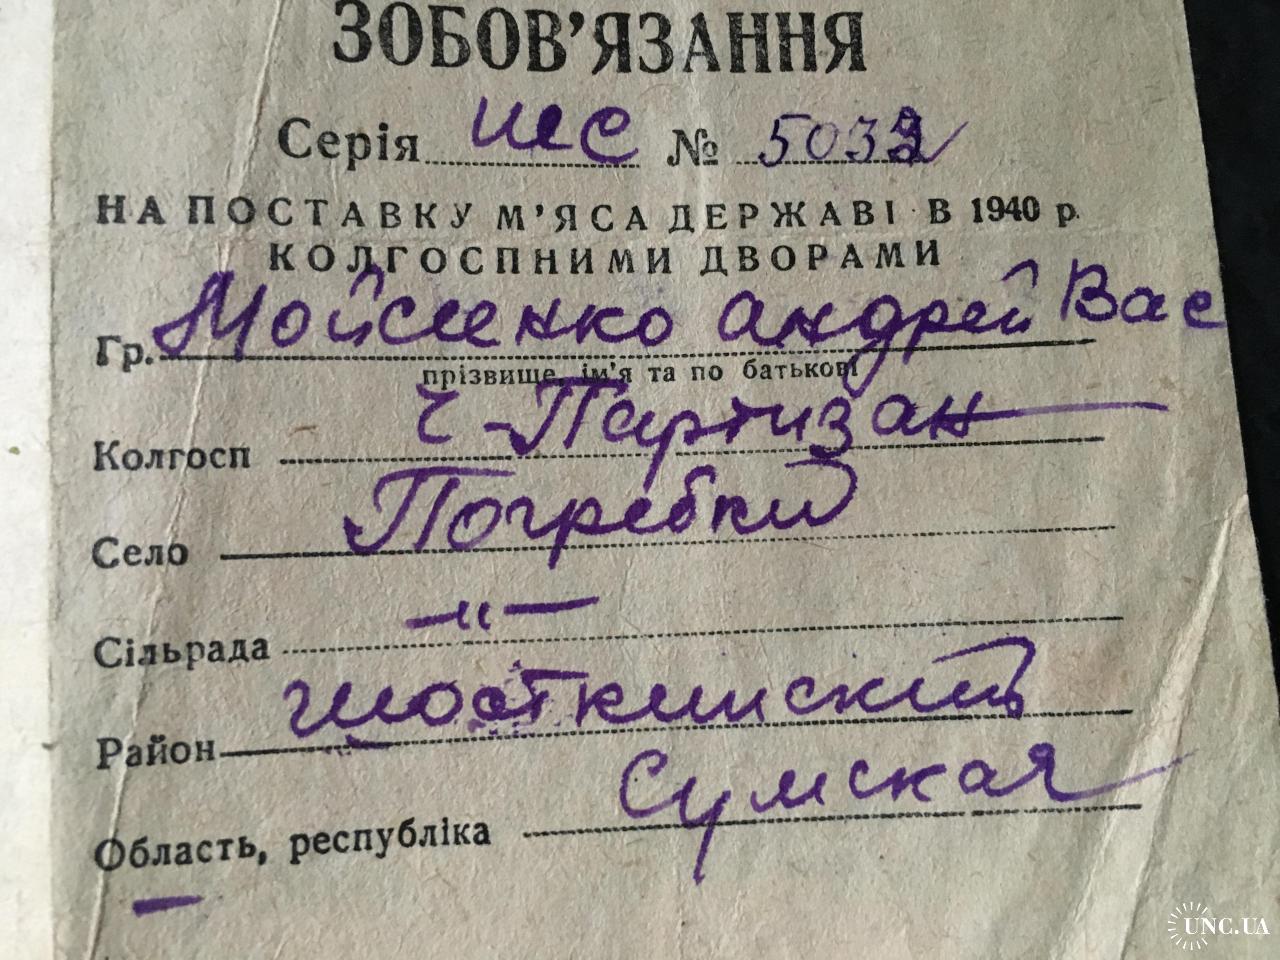 ЗОБОВ'ЯЗАННЯ
Серія ШС № 5032
НА ПОСТАВКУ М'ЯСА ДЕРЖАВІ В 1940 р.
КОЛГОСПНИМИ ДВОРАМИ
Гр. Мойсеенко Андрей Вас
прізвище, ім'я та по батькові
Колгосп Ч-Партизан
Село Погребки
Сільрада —"—
Район Шосткинский
Область, республіка Сумская
UNC.UA